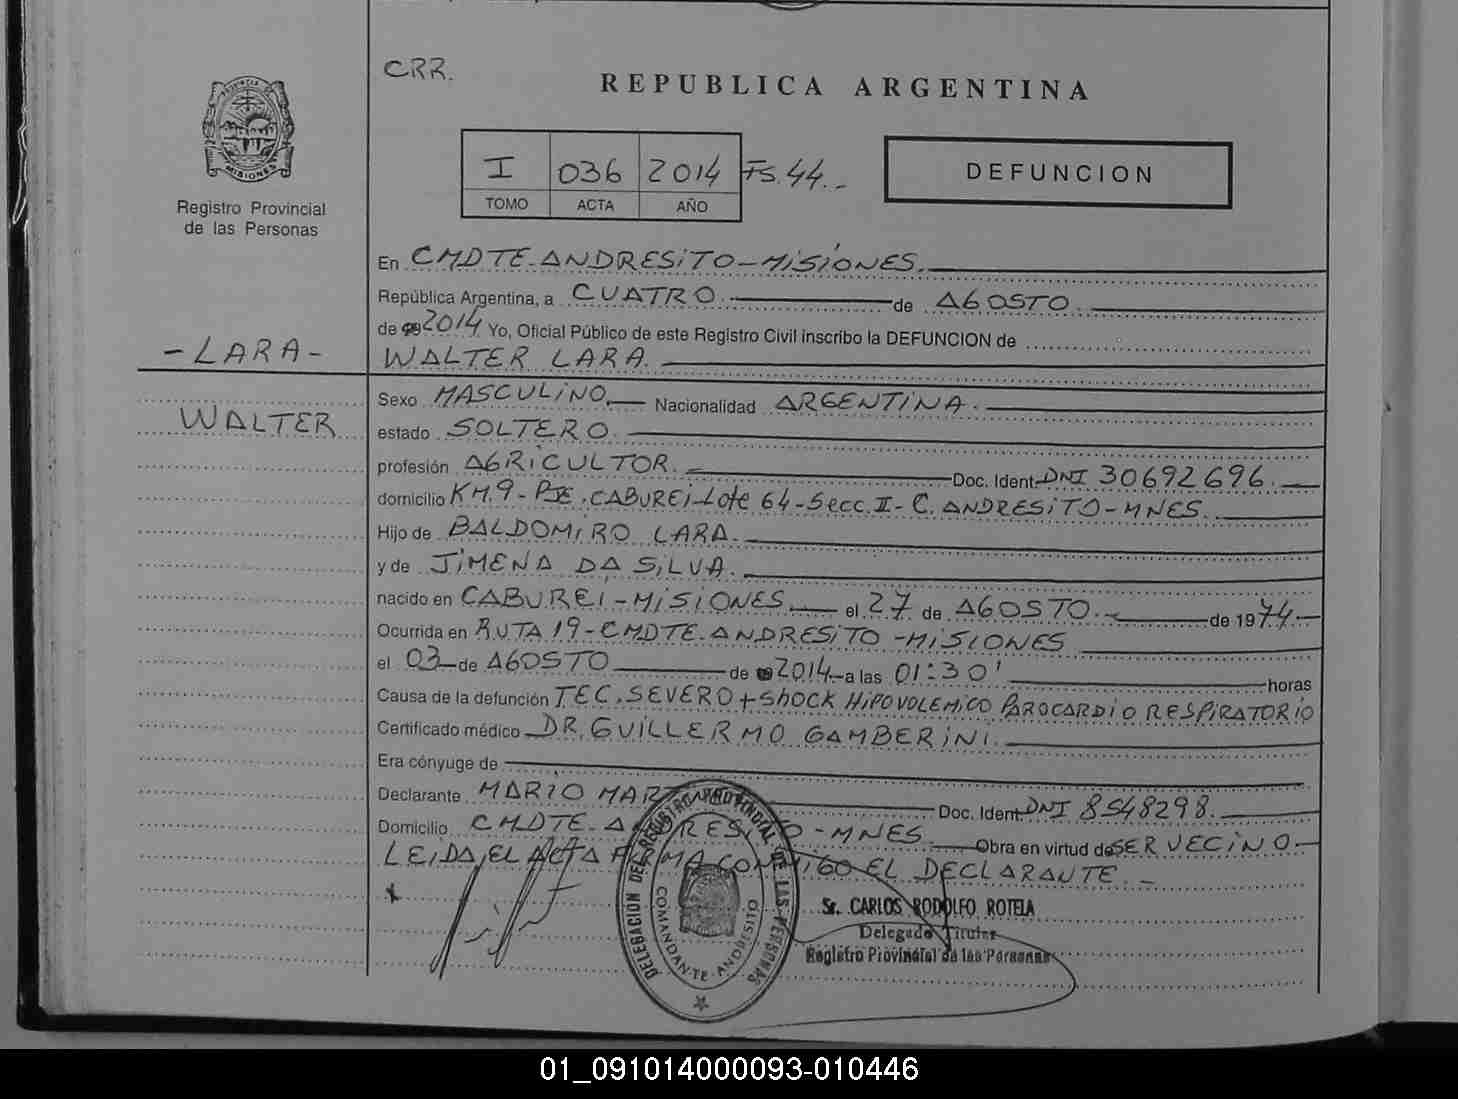 CRR.
REPUBLICA ARGENTINA
PROVINCIA DE
MISIONES
I 036 2014 Fs. 44.-
TOMO ACTA AÑO
DEFUNCION
Registro Provincial
de las Personas
En CMDTE-ANDRESiTO-MiSiONES.
República Argentina, a CUATRO. de AGOSTO.
de 2014 Yo, Oficial Público de este Registro Civil inscribo la DEFUNCION de
-LARA-
WALTER LARA.
Sexo MASCULiNO. Nacionalidad ARGENTINA.
WALTER
estado SOLTERO.
profesión AGRiCULTOR. Doc. Ident. DNI 30692696.
domicilio KM.9-PJE.CABUREi-Lote 64-Secc.II-C.ANDRESiTO-MNES.
Hijo de BALDOMiRO LARA.
y de JiMENA DA SiLVA.
nacido en CABUREI-MiSiONES. el 27 de AGOSTO. de 1974.-
Ocurrida en RUTA 19-CMDTE.ANDRESiTO-MiSiONES
el 03 de AGOSTO de 2014 a las 01:30' horas
Causa de la defunción TEC.SEVERO+ShOCK HiPOVOLEMiCO PAROCARDiO RESPiRATORiO
Certificado médico DR.GUiLLERMO GAMBERiNi.
Era cónyuge de
Declarante MARIO Doc. Ident. DNI 8548298.
Domicilio CMDTE-ANDRESiTO-MNES. Obra en virtud de SER VECiNO-
LEiDA EL ACTA FiRMA CONMiGO EL DECLARANTE.-
Sr. CARLOS RODOLFO ROTELA
Delegado Titular
Registro Provincial de las Personas
DELEGACION DEL REGISTRO PROVINCIAL DE LAS PERSONAS
COMANDANTE ANDRESITO
01_091014000093-010446